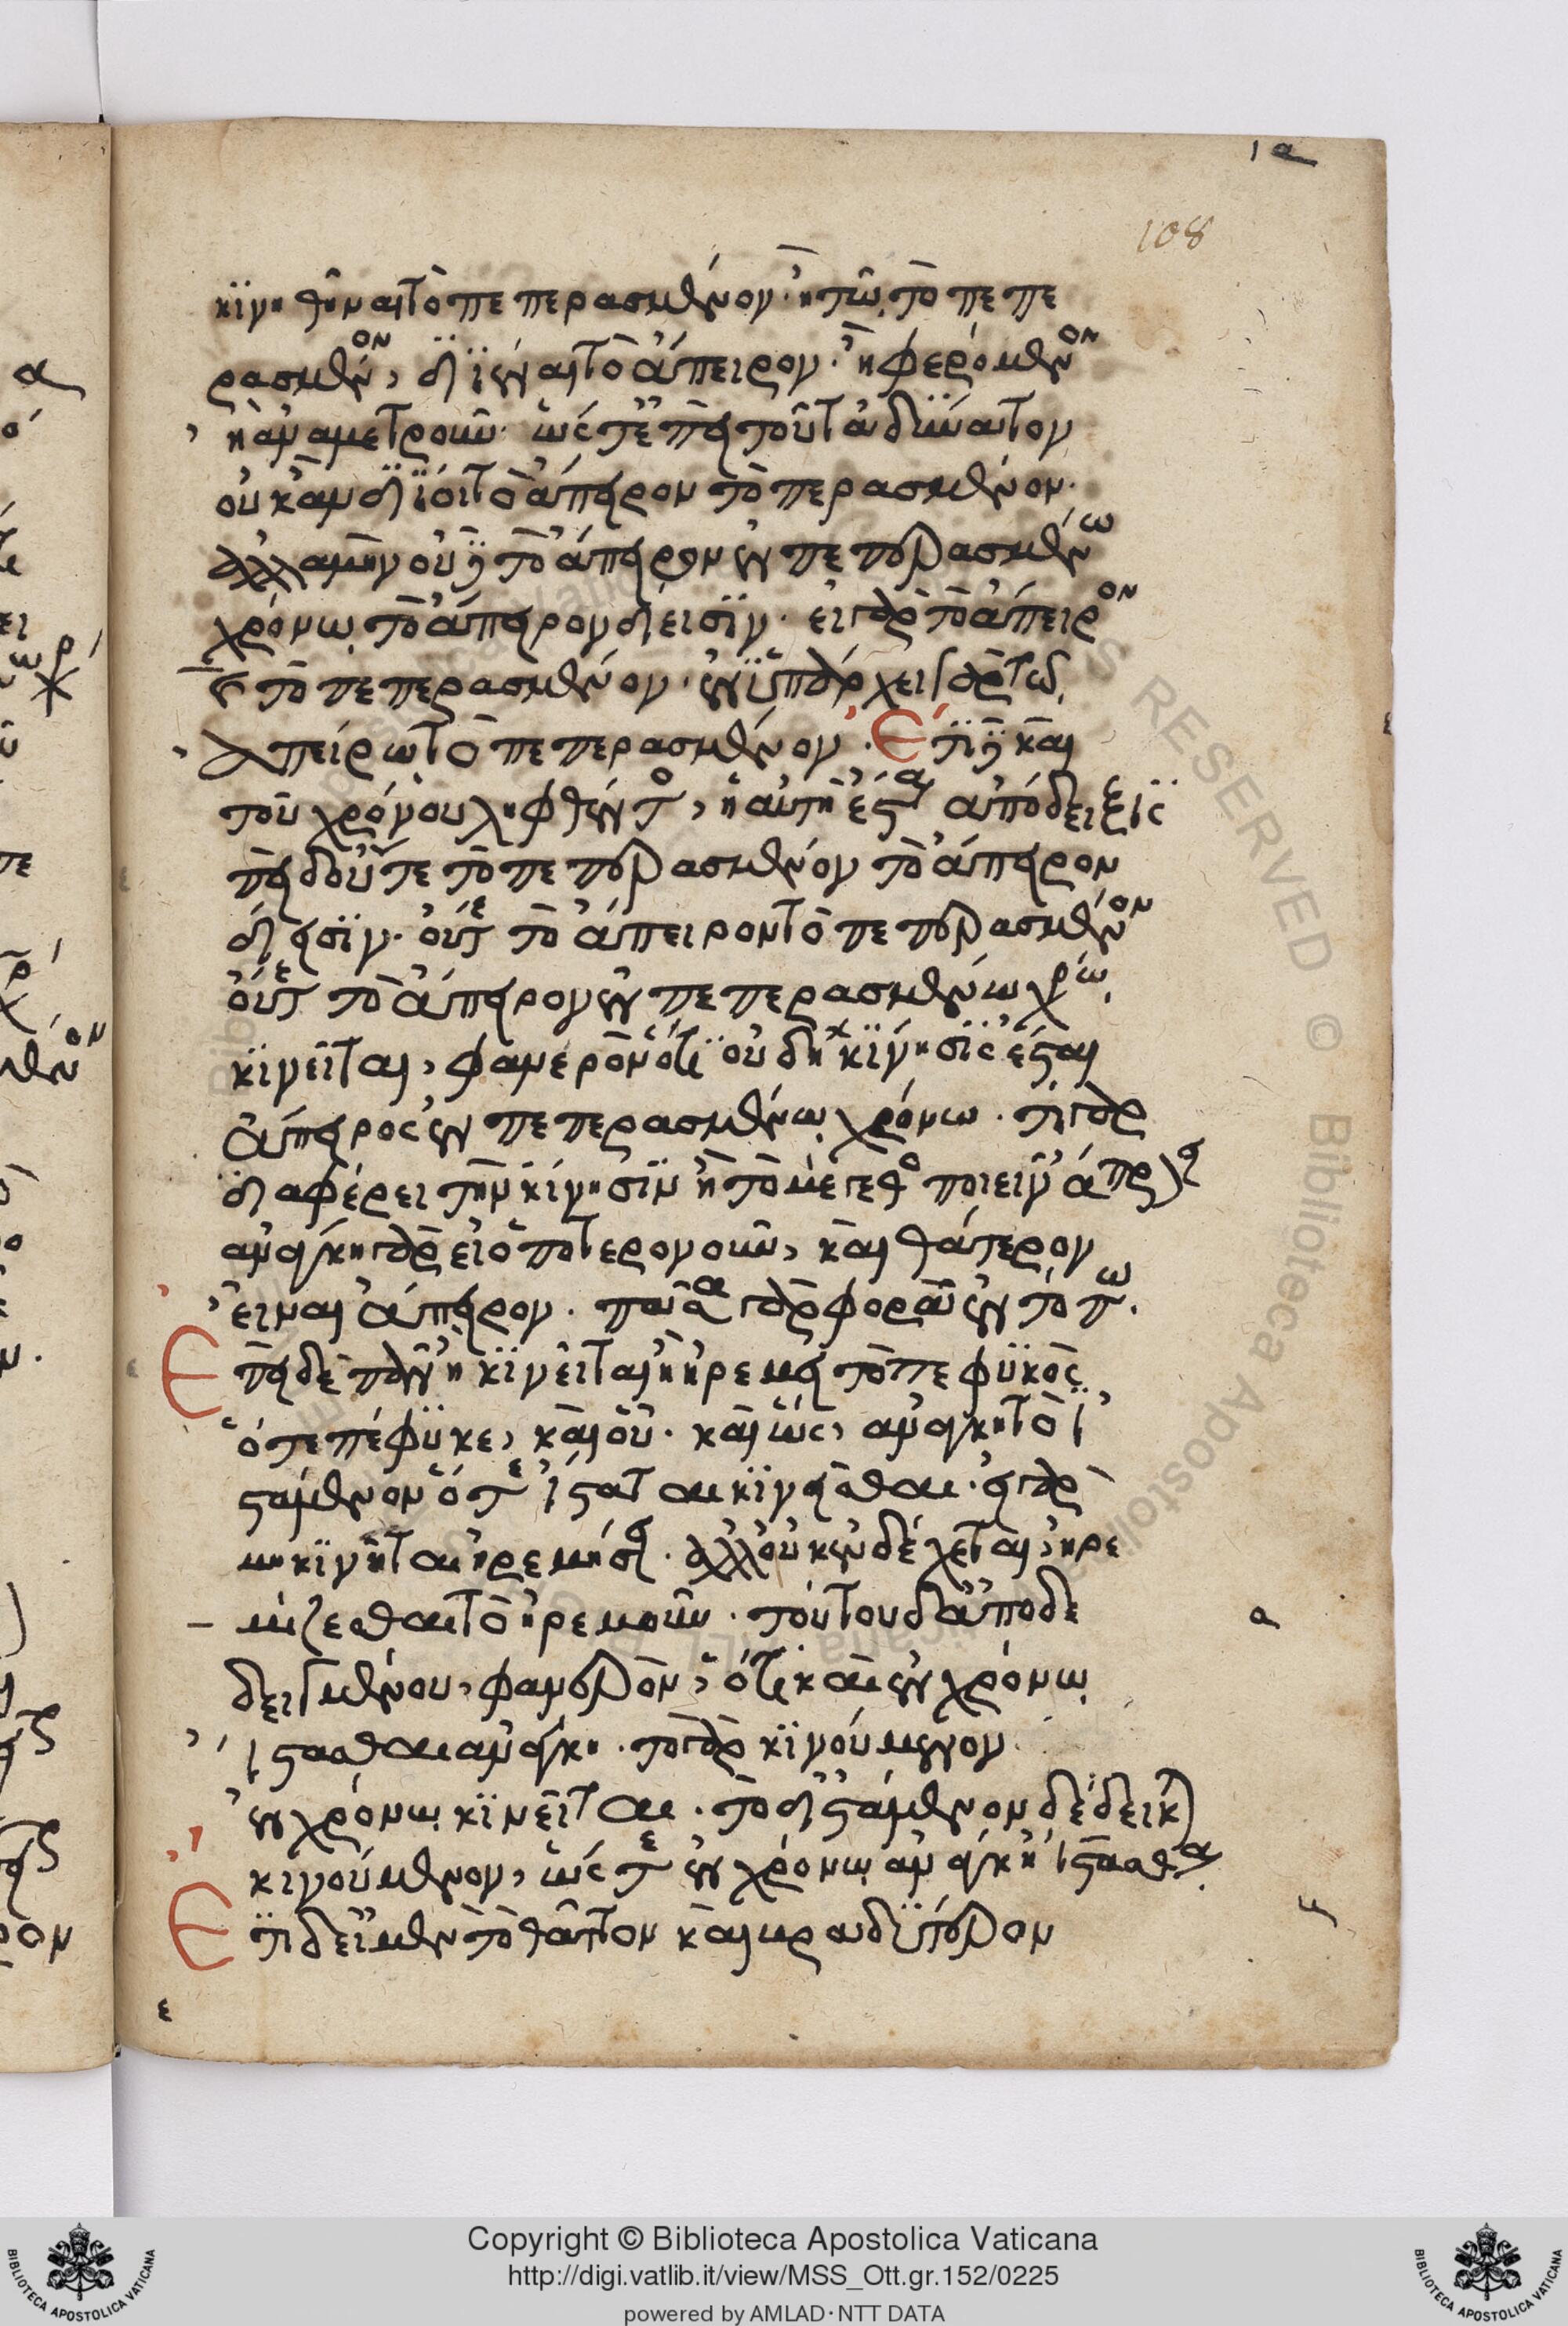 ια
108
κϊνηθῆναι τὸ πεπερασμένον· ἢ τῶ τὸ πεπε
ρασμένον, διϊέναι τὸ ἄπειρον· ἢ φερόμενον
ἢ ἀναμετροῦν· ὥστ' ἐπεὶ τοῦτ' ἀδϋνατον
οὐκ ἂν διΐοι τὸ ἄπειρον τὸ περασμένον·
ἀλλὰ μὴν οὐδὲ τὸ ἄπειρον ἐν πεπερασμένω
χρόνω τὸ ἄπειρον δίεισϊν· εἰ γὰρ τὸ ἄπειρον
καὶ τὸ πεπερασμένον· ἐνϋπάρχει γὰρ τῶ
ἀπείρω τὸ πεπερασμένον· Ἔτϊ δὲ καὶ
τοῦ χρόνου ληφθέντος, ἡ αὐτὴ ἔσται ἀπόδειξϊς
ἐπεὶ δ' οὔτε τὸ πεπερασμένον τὸ ἄπειρον
δίεισϊν· οὔτε τὸ ἄπειρον τὸ πεπερασμένον
οὔτε τὸ ἄπειρον ἐν πεπερασμένω χρόνω
κϊνεῖται, φανερὸν ὅτϊ οὐδὲ κΐνησϊς ἔσται
ἄπειρος ἐν πεπερασμένω χρόνω· τί γὰρ
διαφέρει τὴν κίνησϊν ἢ τὸ μέγεθος ποιεῖν ἄπειρον
ἀνάγκη γὰρ εἰ ὁποτερονοῦν, καὶ θάτερον
εἶναι ἄπειρον· πᾶσα γὰρ φορὰ ἐν τόπω·
Ἐπεὶ δὲ πᾶν ἢ κϊνεῖται ἢ ἠρεμεῖ τὸ πεφϋκὸς
ὅτε πέφϋκε, καὶ οὗ· καὶ ὡς, ἀνάγκη τὸ ϊ
στάμενον ὅτε ἵσταται κϊνεῖσθαι· εἰ γὰρ
μὴ κϊνῆται ἠρεμήσει· ἀλλ' οὐκ ἐνδέχεται, ἠρε
μίζεσθαι τὸ ἠρεμοῦν· τούτου δ' ἀποδε
δειγμένου, φανερὸν, ὅτϊ καὶ ἐν χρόνω
ἵστασθαι ἀνάγκη· τὸ γὰρ κϊνούμενον
ἐν χρόνω κϊνεῖται· τὸ δ' ἱστάμενον δέδεικται
κινούμενον, ὥστε ἐν χρόνω ἀνάγκη ἵστασθαι·
Ἔτϊ δ' εἰ μὲν τὸ θᾶττον καὶ βραδϋτερον
Copyright © Biblioteca Apostolica Vaticana
http://digi.vatlib.it/view/MSS_Ott.gr.152/0225
powered by AMLAD·NTT DATA